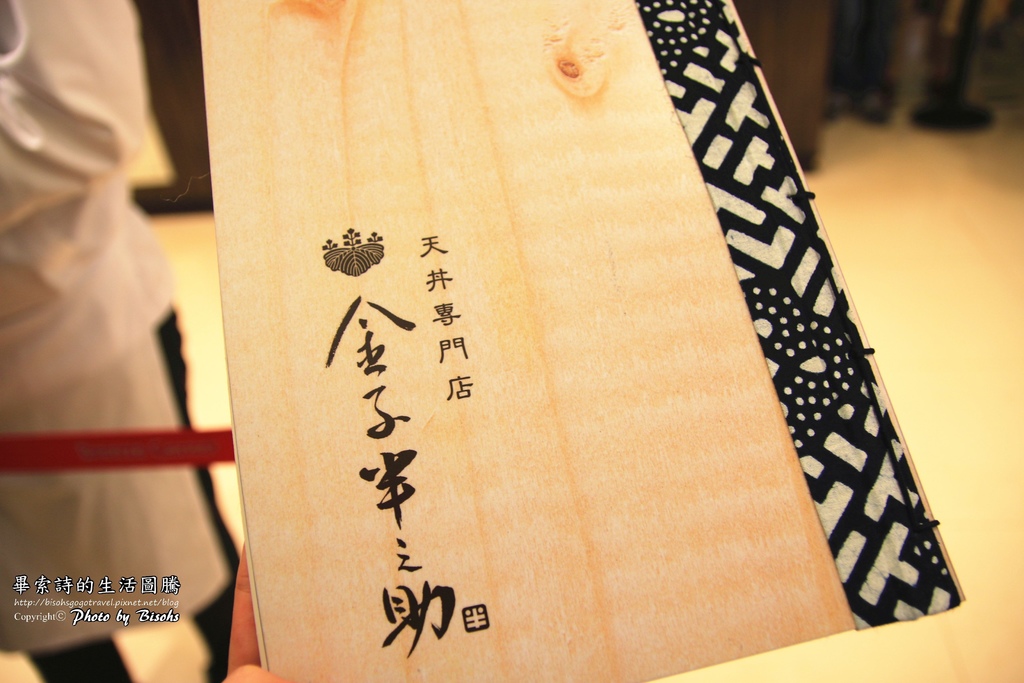 天丼專門店
金子半之助
半
畢索詩的生活圖騰
http://bisohsgogotravel.pixnet.net/blog
Copyright© Photo by Bisohs